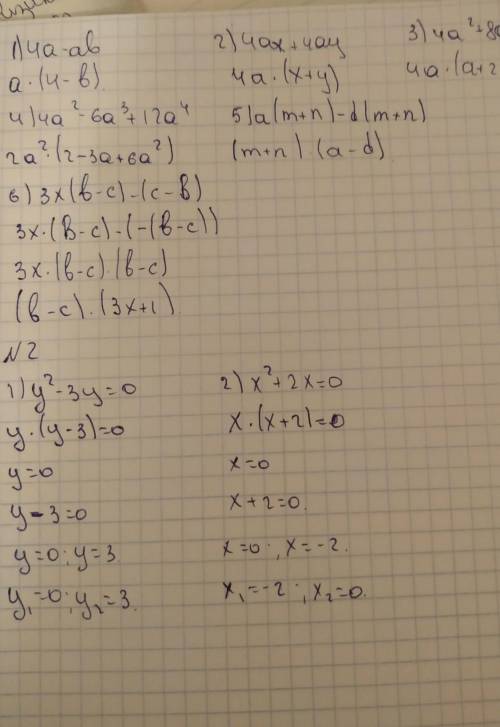 1) 4a-ab
a·(4-в)
2) 4ax+4ay
4a·(x+y)
3) 4a²+8a
4a·(a+2
4) 4a²-6a³+12a⁴
2a²·(2-3a+6a²)
5) a(m+n)-d(m+n)
(m+n) (a-d)
6) 3x(в-c)-(c-в)
3x·(в-c)-(-(в-c))
3x·(в-c)·(в-c)
(в-c)·(3x+1)
N2
1) y²-3y=0
y·(y-3)=0
y=0
y-3=0
y=0; y=3
y₁=0; y₂=3.
2) x²+2x=0
x·(x+2)=0
x=0
x+2=0.
x=0; x=-2.
x₁=-2; x₂=0.